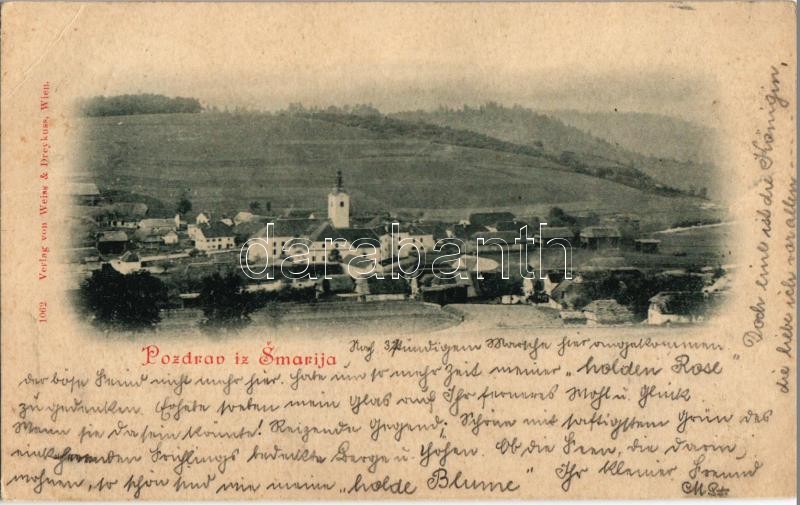 1062 Verlag von Weiss & Dreykuss, Wien.
darabanth
Pozdrav iz Šmarija
Nach 3stündigem Marsche hier angekommen
der böse Feind nicht mehr hier. Habe um so mehr Zeit meiner "holden Rose"
zu gedenken. Erhebe soeben mein Glas auf Ihr ferneres Wohl u. Glück
Wenn sie da sein könnte! Reizende Gegend; Schöne mit saftigstem Grün des
Frühlings bedeckte Berge u. Höhen. Ob die Feen, die darin
wohnen, so schön sind wie meine "holde Blume" Ihr kleiner Freund
Doch eine ist die Königin,
die liebe ich vor allen.